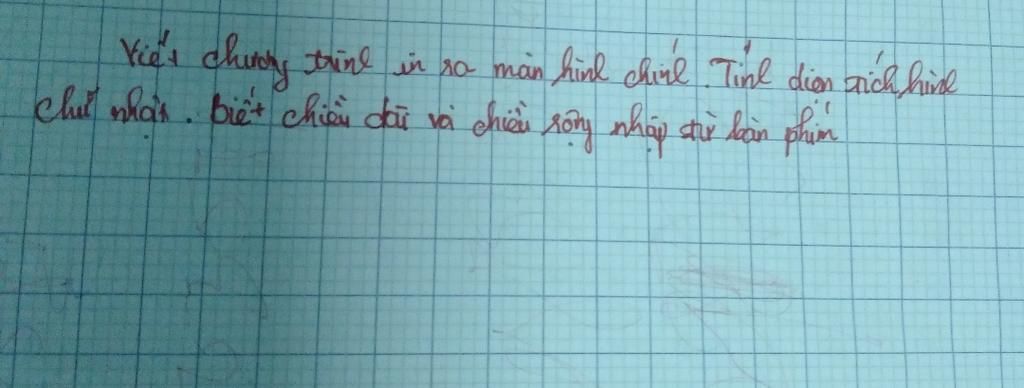 Viết chương trình in ra màn hình chính. Tính diện tích hình
chữ nhật. Biết chiều dài và chiều rộng nhập từ bàn phím